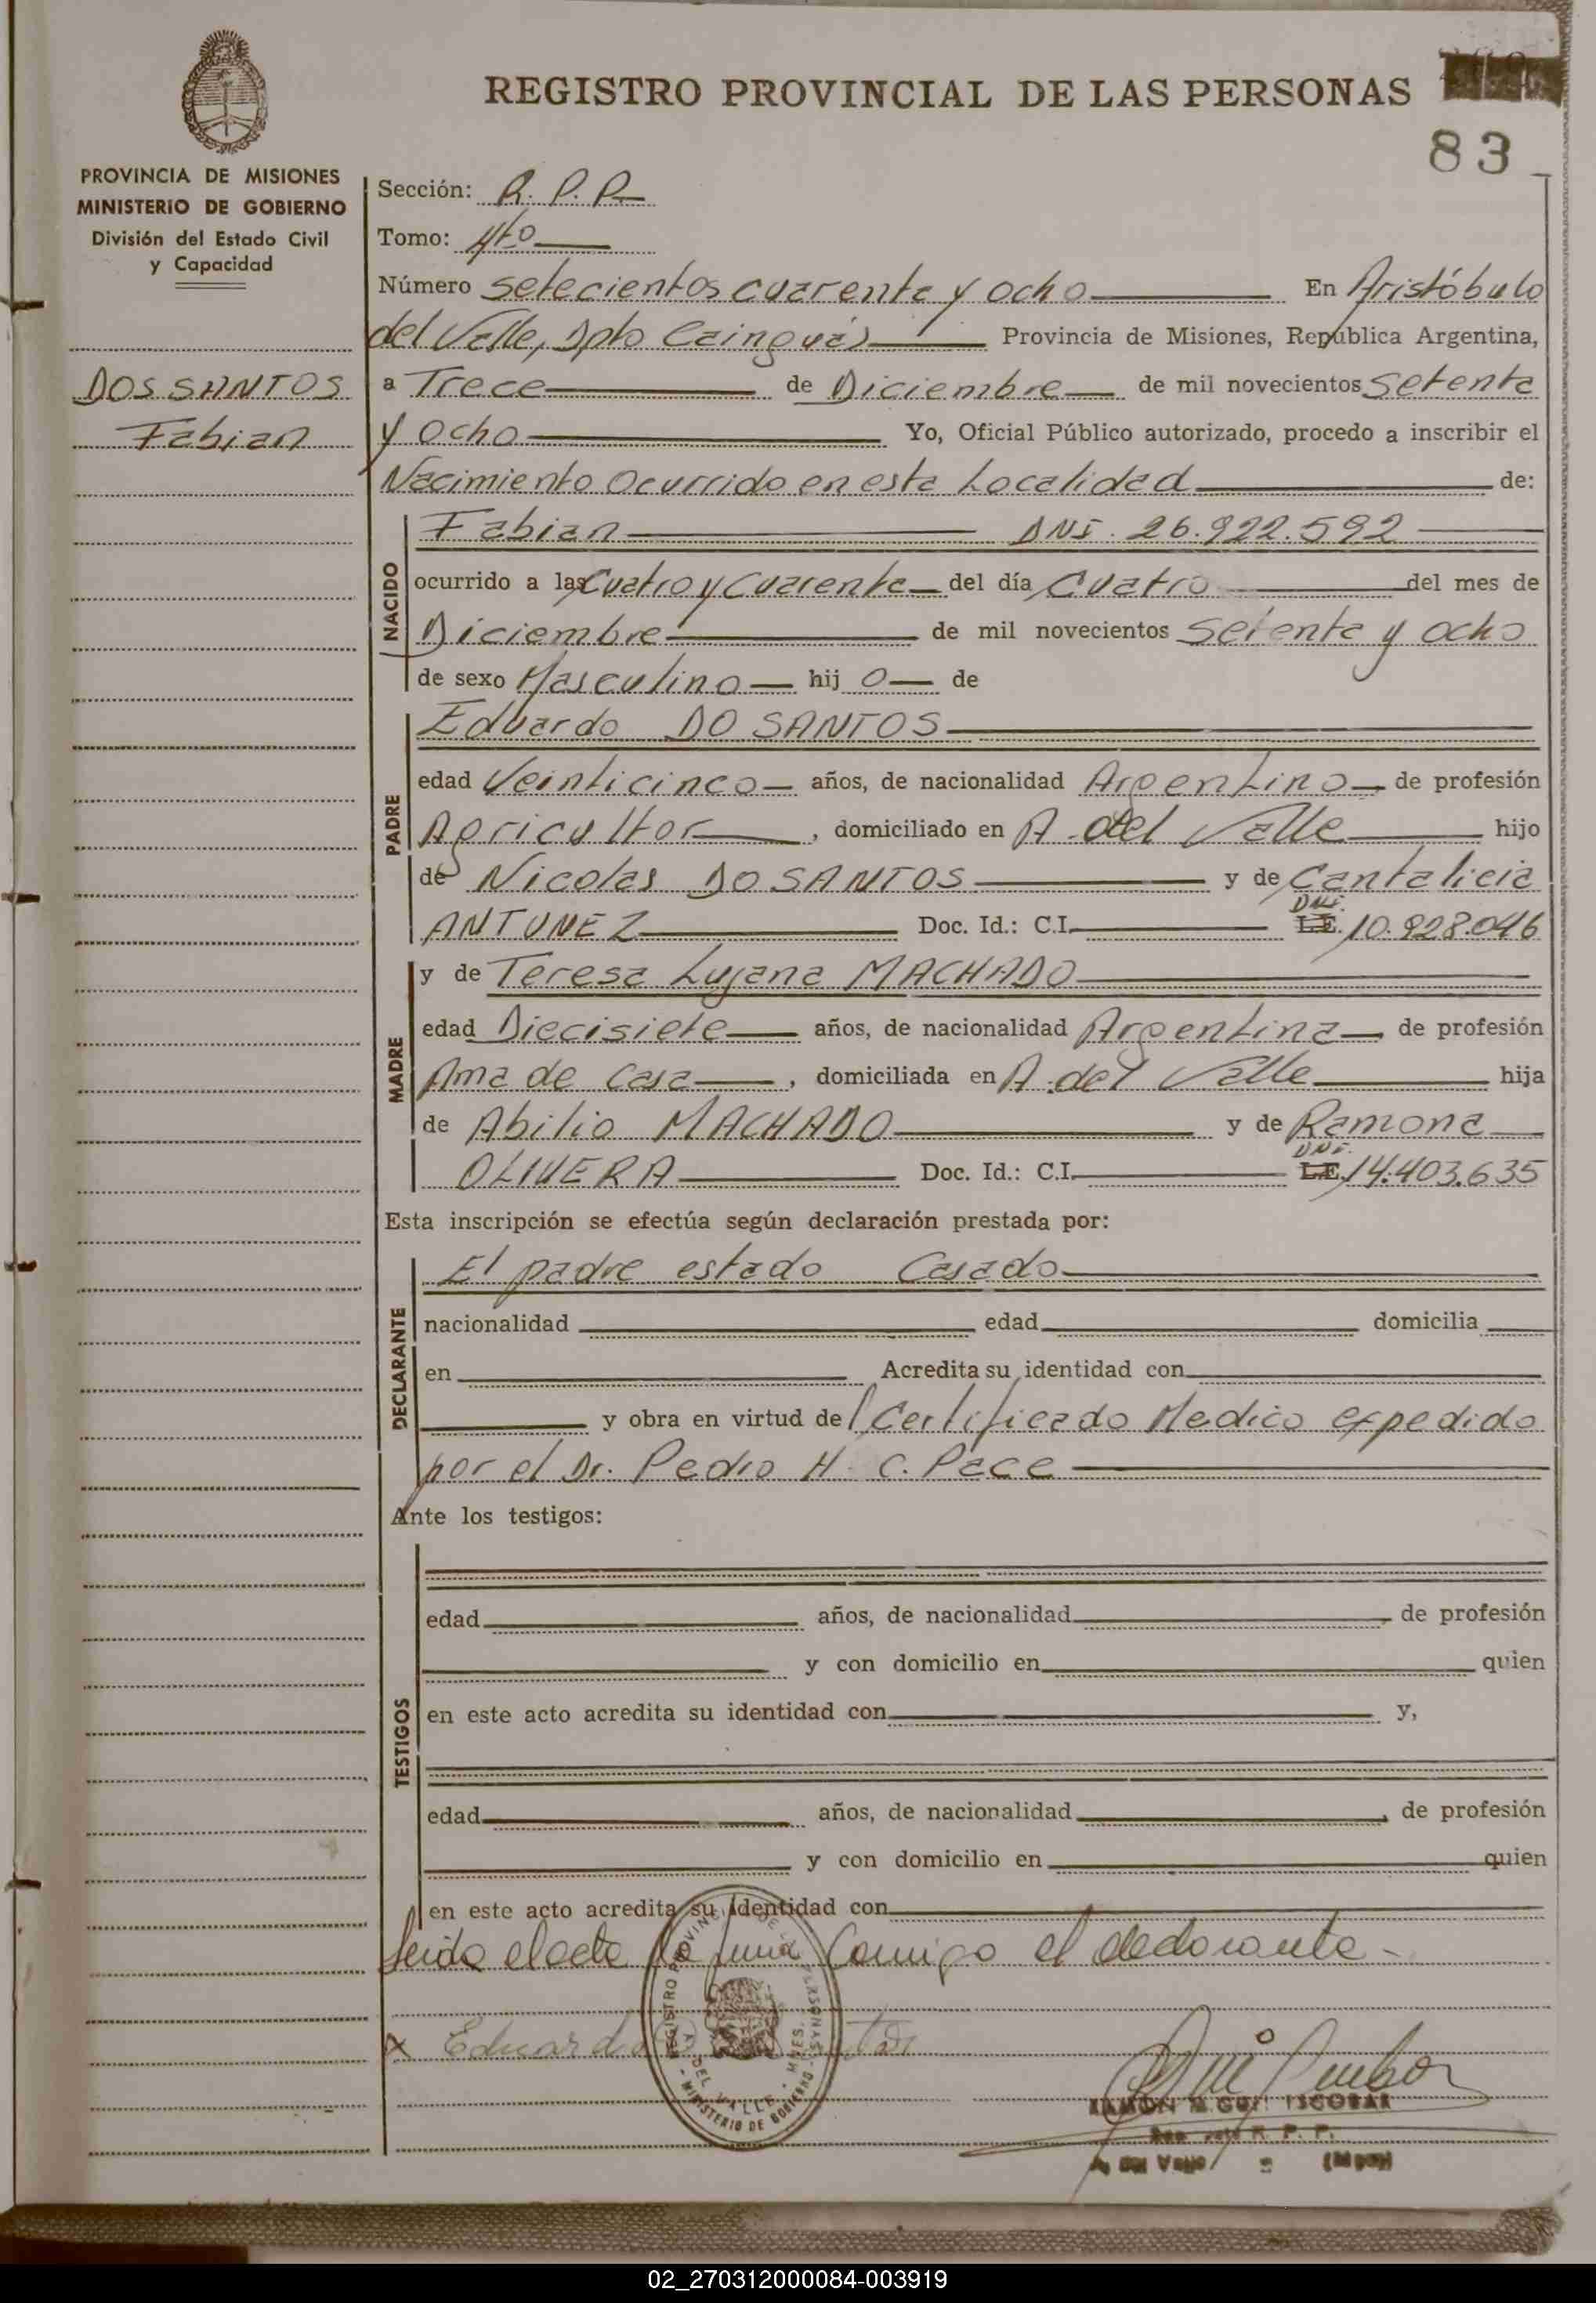 REGISTRO PROVINCIAL DE LAS PERSONAS
83
PROVINCIA DE MISIONES
MINISTERIO DE GOBIERNO
División del Estado Civil
y Capacidad
DOS SANTOS
Fabian
Sección: R. P. P.
Tomo: 4to
Número setecientos cuarenta y ocho En Aristóbulo
del Valle, Dpto Cainguás Provincia de Misiones, República Argentina,
a Trece de Diciembre de mil novecientos setenta
y ocho Yo, Oficial Público autorizado, procedo a inscribir el
Nacimiento ocurrido en esta Localidad de:
NACIDO
Fabian DNI. 26.922.592
ocurrido a las Cuatro y Cuarenta del día Cuatro del mes de
Diciembre de mil novecientos setenta y ocho
de sexo Masculino hij o de
PADRE
Eduardo DO SANTOS
edad Veinticinco años, de nacionalidad Argentino de profesión
Agricultor, domiciliado en A. del Valle hijo
de Nicolas DO SANTOS y de Cantalicia
ANTUNEZ Doc. Id.: C.I. L.E. DNI. 10.928.046
MADRE
y de Teresa Lujana MACHADO
edad Diecisiete años, de nacionalidad Argentina de profesión
Ama de Casa, domiciliada en A. del Valle hija
de Abilio MACHADO y de Ramona
OLIVERA Doc. Id.: C.I. L.E. DNI. 14.403.635
Esta inscripción se efectúa según declaración prestada por:
DECLARANTE
El padre estado Casado
nacionalidad edad domicilia
en Acredita su identidad con
y obra en virtud del Certificado Medico expedido
por el Dr. Pedro H. C. Pace
Ante los testigos:
TESTIGOS
edad años, de nacionalidad de profesión
y con domicilio en quien
en este acto acredita su identidad con y,
edad años, de nacionalidad de profesión
y con domicilio en quien
en este acto acredita su identidad con
Leida el acta la firma Conmigo el declarante.-
x Eduardo
REGISTRO PROVINCIAL DE LAS PERSONAS
A. DEL VALLE - MNES.
MINISTERIO DE GOBIERNO
RAMON M. GUI ESCOBAR
R. P. P.
A. del Valle (Mnes)
02_270312000084-003919